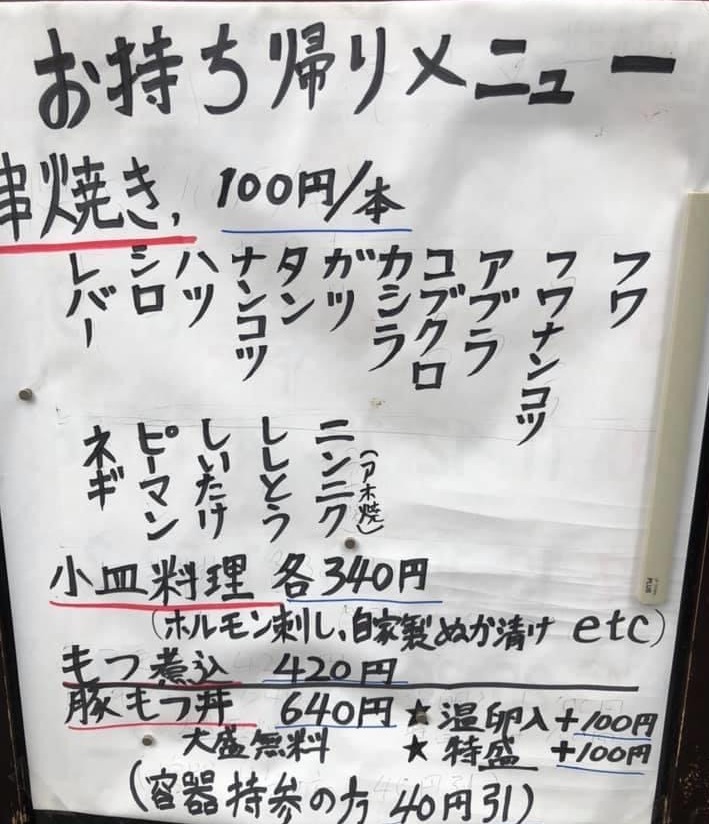 お持ち帰りメニュー
串焼き, 100円/本
フワ
フワナンコツ
アブラ
コブクロ
カシラ
ガツ
タン
ナンコツ
ハツ
シロ
レバー
ニンニク(アホ焼)
ししとう
しいたけ
ピーマン
ネギ
小皿料理 各340円
(ホルモン刺し、自家製ぬか漬け etc)
もつ煮込 420円
豚もつ丼 640円 ★温卵入+100円
大盛無料 ★特盛 +100円
(容器持参の方 40円引)
PLUS